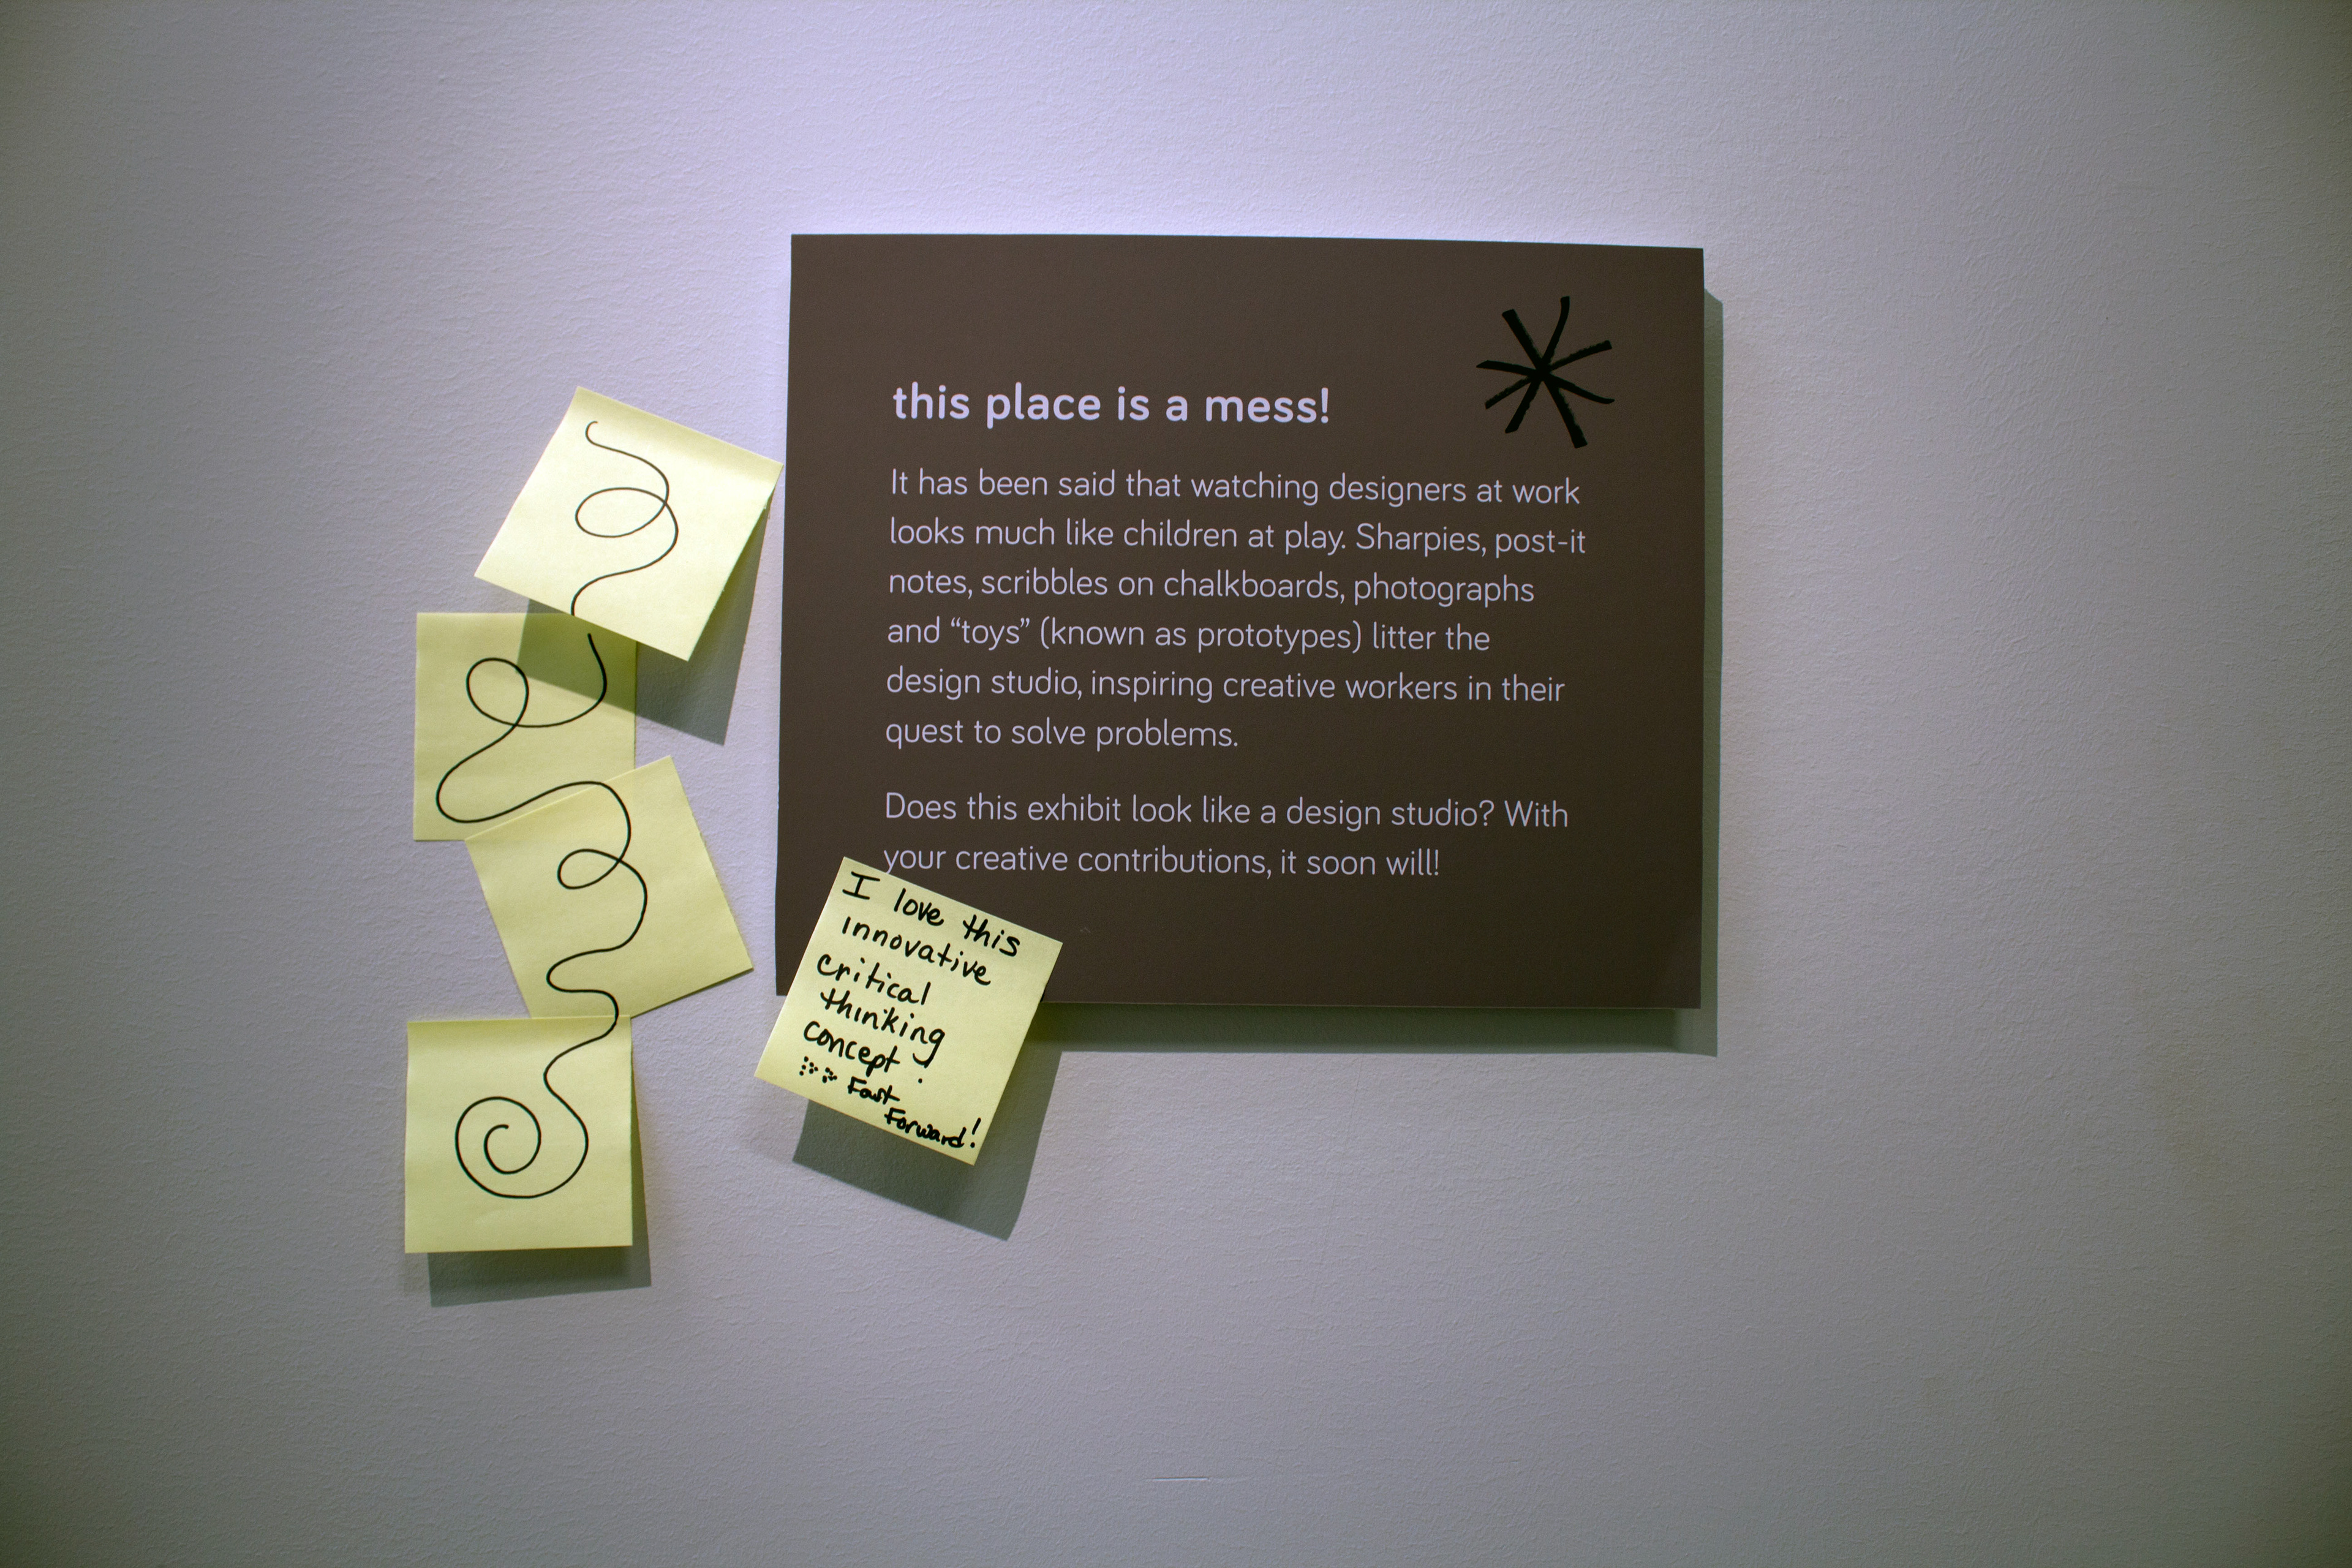 this place is a mess!
It has been said that watching designers at work
looks much like children at play. Sharpies, post-it
notes, scribbles on chalkboards, photographs
and “toys” (known as prototypes) litter the
design studio, inspiring creative workers in their
quest to solve problems.
Does this exhibit look like a design studio? With
your creative contributions, it soon will!
I love this
innovative
critical
thinking
concept!
Fast
Forward!